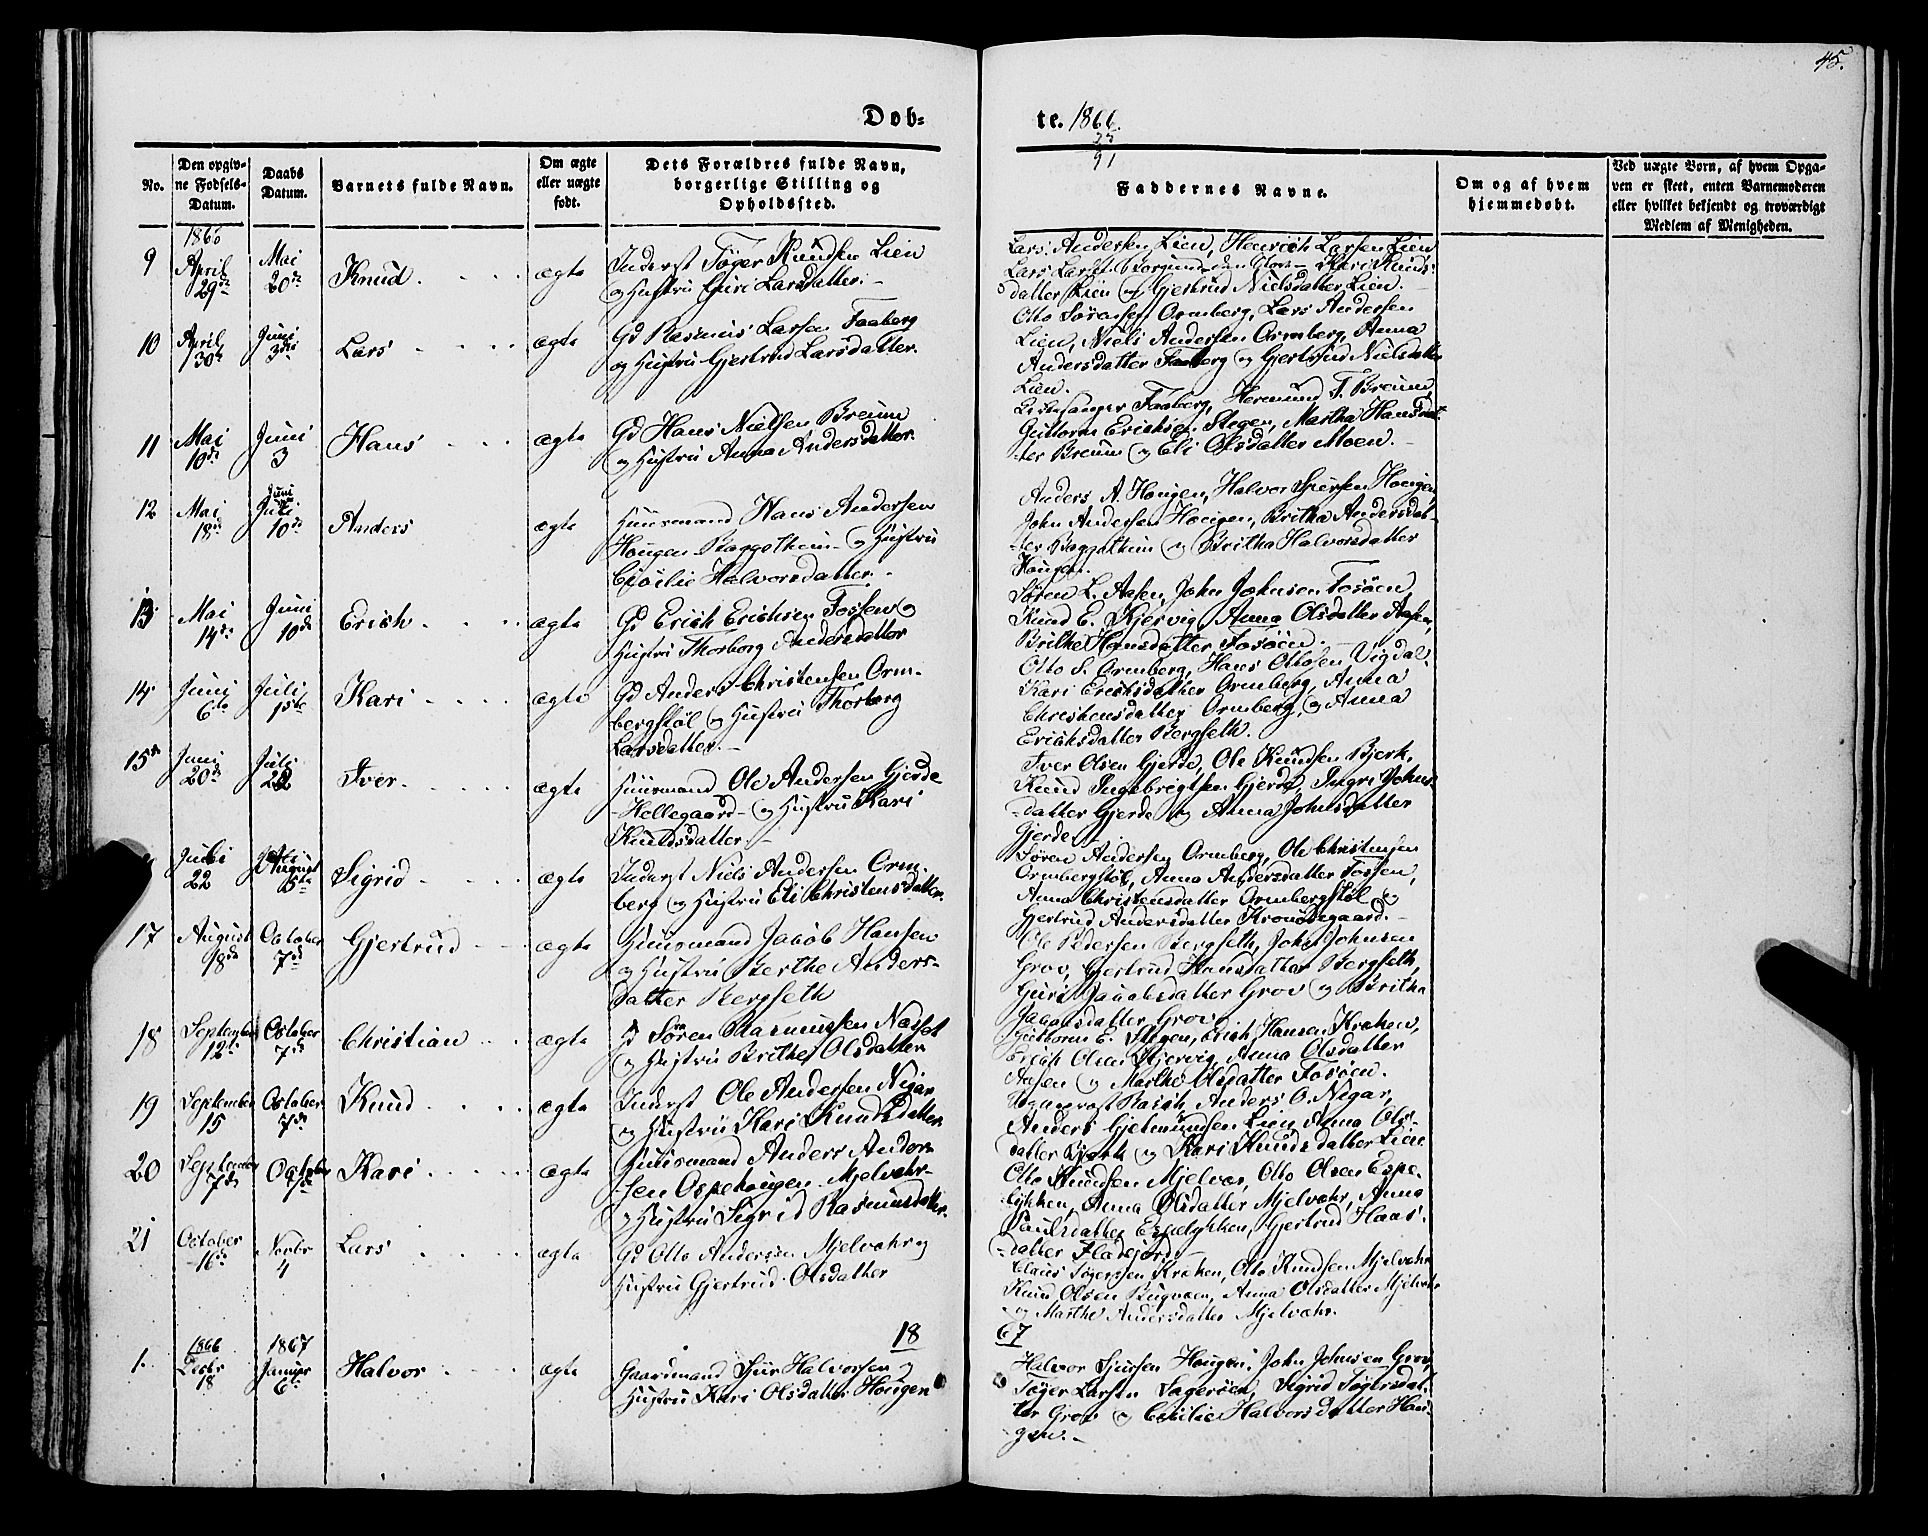 45.
Døb-
te. 1866.
No.
Den opgiv-
ne Fødsels-
Datum.
Daabs
Datum.
Barnets fulde Navn.
Om ægte
eller uægte
født.
Dets Forældres fulde Navn,
borgerlige Stilling og
Opholdssted.
91
Faddernes Navne.
Om og af hvem
hjemmedøbt.
Ved uægte Børn, af hvem Opga-
ven er skeet, enten Barnemoderen
eller hvilket bekjendt og troværdigt
Medlem af Menigheden.
1866
9
April
29de
Mai
20de
Knud
ægte
Inderst Tøger Knudsen Lien
og Hustru Guri Larsdatter.
Lars Andersen Lien, Henrich Larsen Lien
Lars Larsen Kari Knuds-
datter Lien og Gjertrud Nielsdatter Lien.
10
April
30te
Juni
3die
Lars
ægte
Gd Rasmus Larsen Faaberg
og Hustru Gjertrud Larsdatter.
Otto Sørensen Ormberg, Lars Andersen
Lien, Niels Andersen Ormberg, Anna
Andersdatter Faaberg og Gjertrud Nielsdatter
Lien.
11
Mai
10de
Juni
3
Hans
ægte
Gd Hans Nielsen Breum
og Hustru Anna Andersdatter.
Kirkesanger Faaberg, Hermund T. Breum,
Guttorm Erichsen Stegen, Martha Hansdat-
ter Breum og Eli Olsdatter Moen.
12
Mai
18de
Juni
Juli
10de
Anders
ægte
Huusmand Hans Andersen
Hougen Baggethun og Hustru
Cicilie Halvorsdatter.
Anders A. Hougen, Halvor Sjursen Hougen,
John Andersen Hougen, Britha Andersdat-
ter Baggethun og Britha Halvorsdatter
Hougen.
13
Mai
14de
Juni
10de
Erich
ægte
Gd Erich Erichsen Fossen og
Hustru Thorborg Andersdatter
Søren L. Aasen, John Johnsen Fosøen,
Knud E. Kjervig, Anna Olsdatter Aasen,
Brithe Hansdatter Fosøen.
14
Juni
6te
Juli
1ste
Kari
ægte
Gd Anders Christensen Orm-
bergstøl og Hustru Thorborg
Larsdatter.
Otto S. Ormberg, Hans Ottosen Vigdal
Kari Erichsdatter Ormberg, Anna
Christensdatter Ormberg, og Anna
Erichsdatter Bergseth.
15
Juni
20de
Juli
22
Iver
ægte
Huusmand Ole Andersen Gjerde
Hellegaard og Hustru Kari
Knudsdatter
Iver Olsen Gjerde, Ole Knudsen Bjerk,
Knud Ingebrigtsen Gjerde, Ingri Johns-
datter Gjerde og Anna Johnsdatter
Gjerde
Juli
22
August
5te
Sigrid
ægte
Inderst Niels Andersen Orm-
berg og Hustru Eli Christensdatter.
Søren Andersen Ormberg, Ole Christensen
Ormbergstøl, Anna Andersdatter Fossen,
Anna Christensdatter Ormbergstøl og
Gjertrud Andersdatter Kronsgaard.
17
August
18de
October
7de
Gjertrud
ægte
Huusmand Jacob Hansen
og Hustru Berthe Anders-
datter Bergseth
Ole Pedersen Bergseth, John Johnsen
Grov, Gjertrud Hansdatter Bergseth,
Guri Jacobsdatter Grov og Britha
Jacobsdatter Grov
18
September
12te
October
7de
Christian
ægte
Gd Søren Rasmussen Næset
og Hustru Brithe Olsdatter
Guttorm E. Stegen, Erich Hansen Kroken,
Erich Olsen Kjervig, Anna Olsdatter
Aasen og Marthe Olsdatter Fosøen.
19
September
15
October
7de
Knud
ægte
Inderst Ole Andersen Nigar
og Hustru Kari Knudsdatter
Anders O. Nigar,
Anders Gjelmundsen Lien, Anna Ols-
datter Bjerk og Kari Knudsdatter Lien
20
September
7de
October
Kari
ægte
Huusmand Anders Ander-
sen Ospehougen Mjelvær
og Hustru Sigrid Rasmusdatter.
Otto Knudsen Mjelvær, Otto Olsen Espe-
løkken, Anna Olsdatter Mjelvær, Anna
Paulsdatter Espeløkken, Gjertrud Haas-
datter Fladejord
21
October
16de
Novbr
4
Lars
ægte
Gd Otto Andersen Mjelvær og
Hustru Gjertrud Olsdatter
Claus Tøgersen Kroken, Otto Knudsen Mjelvær
Knud Olsen Bugveen, Anna Olsdatter Mjelvær
og Marthe Andersdatter Mjelvær.
18
67
1.
1866
Decbr
18
1867
Januar
6te
Halvor
ægte
Gaardmand Sjur Halvorsen og
Hustru Kari Olsdatter Hougen
Halvor Sjursen Hougen, John Johnsen Grov,
Tøger Larsen Sagerøen, Sigrid Tøgersdat-
ter Grov og Cecilie Halvorsdatter Hou-
gen.